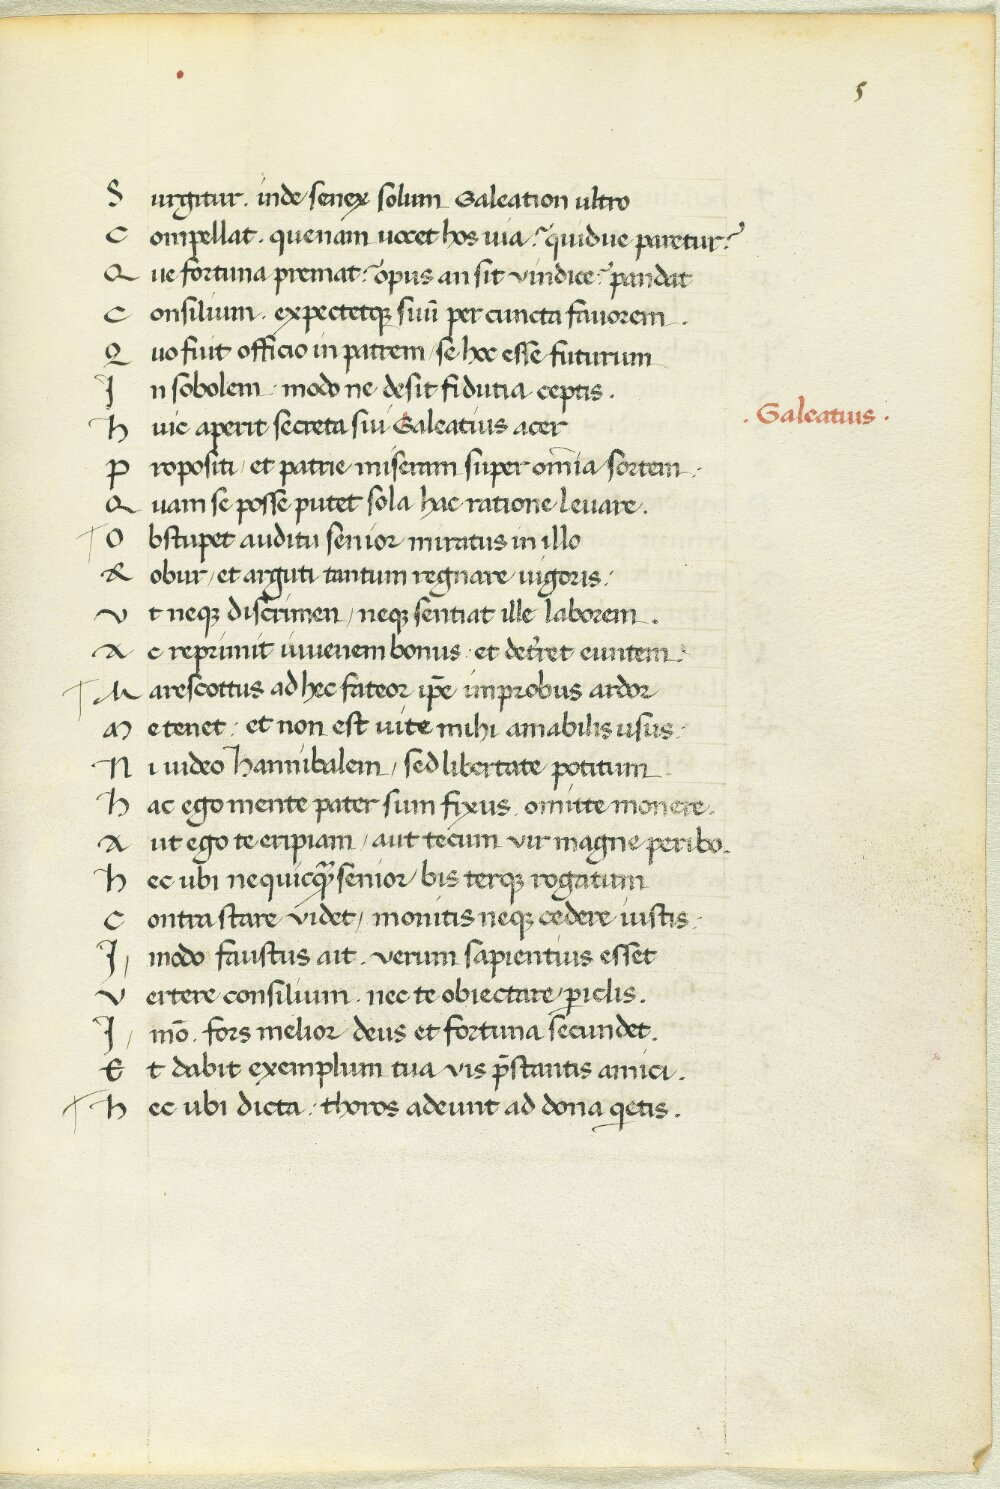 5
Surgitur. inde senex solum Galeation ultro
Compellat. quenam uocet hos uia? quidue paretur?
Que fortuna premat? opus an sit vindice? pandat
Consilium. expectetq; suũ per cuncta fauorem.
Quo fuit officio in patrem / se hoc esse futurum
In sobolem. modo ne desit fidutia ceptis.
huic aperit secreta sui Galeatius acer
. Galeatius .
Propositi / et patrie miseram super om̃ia sortem.
Quam se posse putet sola hac ratione leuare.
Obstupet auditu senior miratus in illo
Robur / et arguti tantum regnare uigoris.
Vt neq; discrimen / neq; sentiat ille laborem.
Ac reprimit iuuenem bonus. et det̃ret euntem.
Marescottus ad hec fateor ip̃e improbus ardor
Me tenet. et non est uite mihi amabilis usus.
Ni uideo hannibalem / sed libertate potitum
hac ego mente pater sum fixus. omitte monere.
Aut ego te eripiam / aut tecum vir magne peribo.
hec ubi nequicq̃ senior bis terq; rogatum
Contra stare videt / monitis neq; cedere iustis.
I, modo faustus ait. verum sapientius esset
Vertere consilium. nec te obiectare ꝑiclis.
I, mõ. fors melior deus et fortuna secundet.
Et dabit exemplum tua vis p̃stantis amici.
hec ubi dicta. thoros adeunt ad dona q̃etis.